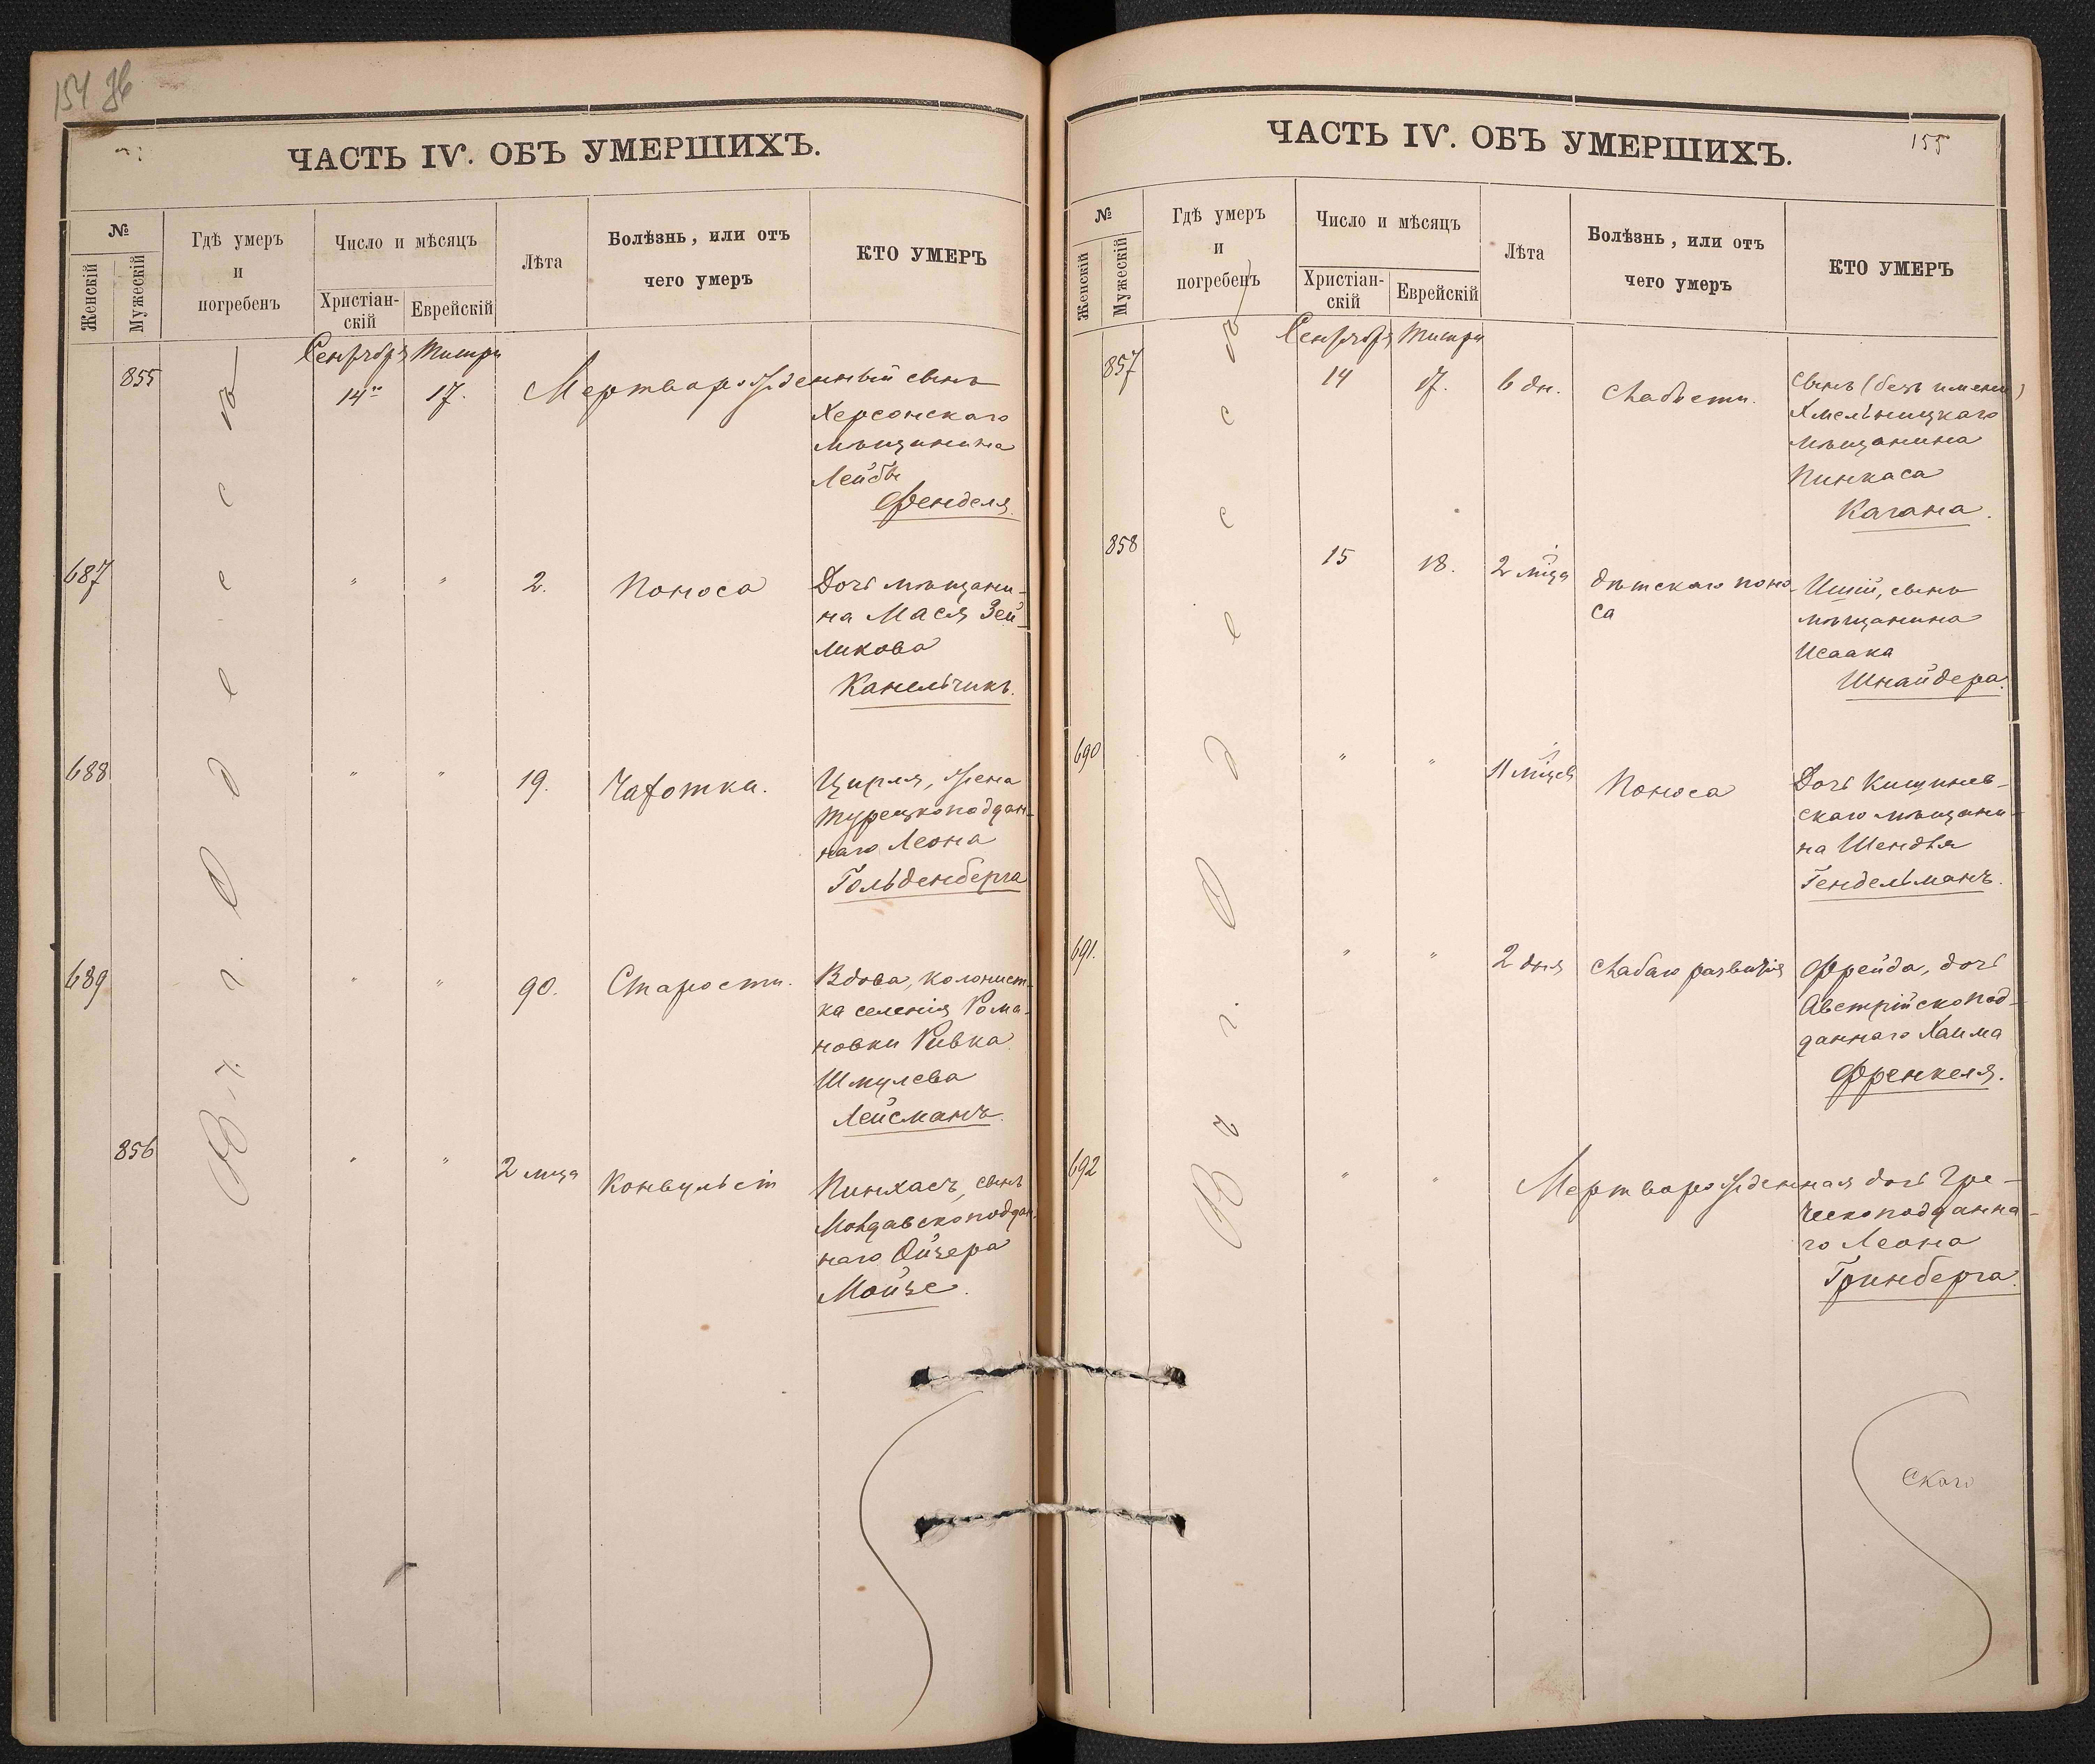 154
ЧАСТЬ IV. ОБЪ УМЕРШИХЪ.
№
Женскій
Мужескій
Гдѣ умеръ
и
погребенъ
Число и мѣсяцъ
Христіан-
скій
Еврейскій
Лѣта
Болѣзнь, или отъ
чего умеръ
КТО УМЕРЪ
Въ г. Одессѣ
Сентября Тишри
855 14го 17. Мертворожденный сынъ
Херсонскаго
мѣщанина
Лейбы
Фенделя.
687 " " 2. Поноса Дочь мѣщани-
на Мася Зей-
ликова
Канельчикъ.
688 " " 19. Чахотки. Цирля, жена
турецкоподдан-
наго Леона
Гольденберга
689 " " 90. Старости. Вдова, колонист-
ка селенія Рома-
новки Ривка
Шмулева
Лейсманъ.
856 " " 2 мца Конвульсіи Пинхасъ, сынъ
Молдавскоподдан-
наго Ойзера
Мойзе.
ЧАСТЬ IV. ОБЪ УМЕРШИХЪ.
155
№
Женскій
Мужескій
Гдѣ умеръ
и
погребенъ
Число и мѣсяцъ
Христіан-
скій
Еврейскій
Лѣта
Болѣзнь, или отъ
чего умеръ
КТО УМЕРЪ
Въ г. Одессѣ
Сентября Тишри
857 14 17. 6 дн. Слабости. Сынъ (безъ имени)
Хмельницкаго
мѣщанина
Пинкаса
Кагана.
858 15 18. 2 мца Дѣтскаго поно-
са
Иций, сынъ
мѣщанина
Исаака
Шнайдера.
690 " " 11 мцев Поноса Дочь Кишинев-
скаго мѣщани-
на Шендля
Гендельманъ.
691. " " 2 дня Слабаго развитія Фрейда, дочь
Австрійскопод-
даннаго Хаима
Френкеля.
692 " " Мертворожденная дочь Гре-
ческоподданна-
го Леона
Гринберга.
скаго